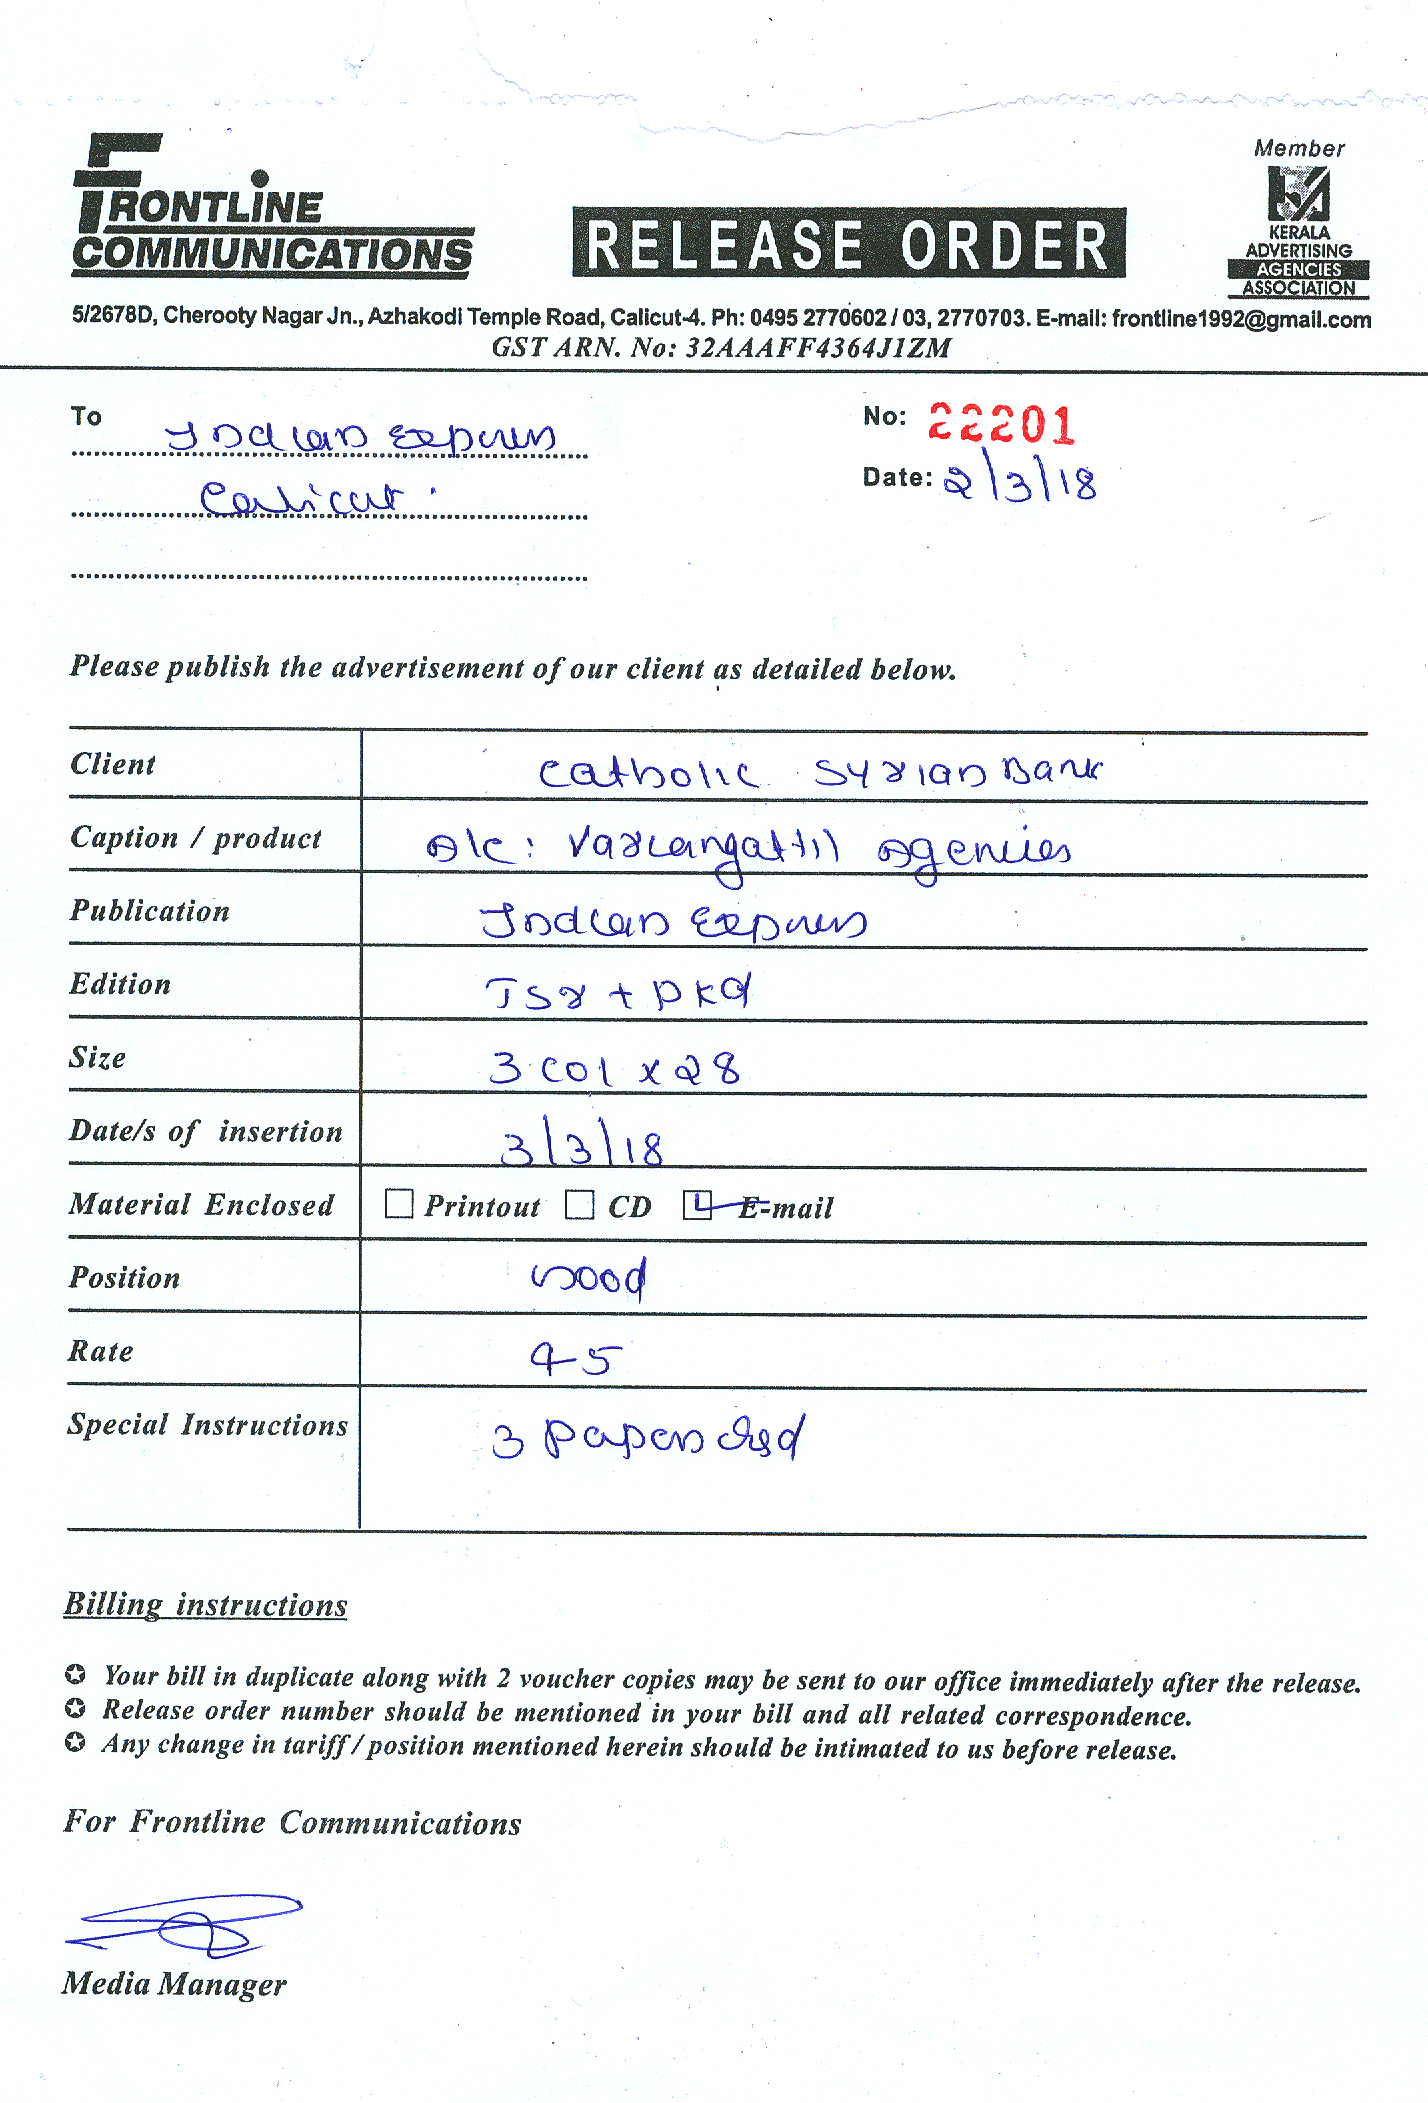 FRONTLINE
COMMUNICATIONS
RELEASE ORDER
Member
KERALA
ADVERTISING
AGENCIES
ASSOCIATION
5/2678D, Cherooty Nagar Jn., Azhakodi Temple Road, Calicut-4. Ph: 0495 2770602 / 03, 2770703. E-mail: frontline1992@gmail.com
GST ARN. No: 32AAAFF4364J1ZM
To Indian Express
Calicut.
No: 22201
Date: 2/3/18
Please publish the advertisement of our client as detailed below.
Client Catholic Syrian Bank
Caption / product A/c: Variangattil Agencies
Publication Indian Express
Edition TSR + PKD
Size 3 col x 28
Date/s of insertion 3/3/18
Material Enclosed Printout CD E-mail
Position Good
Rate 45
Special Instructions 3 Papers
Billing instructions
Your bill in duplicate along with 2 voucher copies may be sent to our office immediately after the release.
Release order number should be mentioned in your bill and all related correspondence.
Any change in tariff/position mentioned herein should be intimated to us before release.
For Frontline Communications
Media Manager